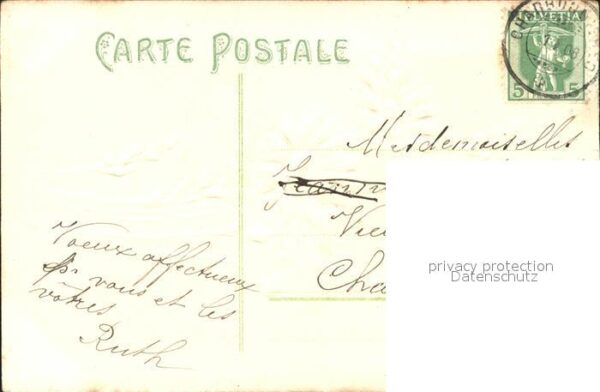 CARTE POSTALE
HELVETIA
5 5
Mesdemoiselles
Voeux affectueux
pr vous et les
vôtres
Ruth
privacy protection
Datenschutz